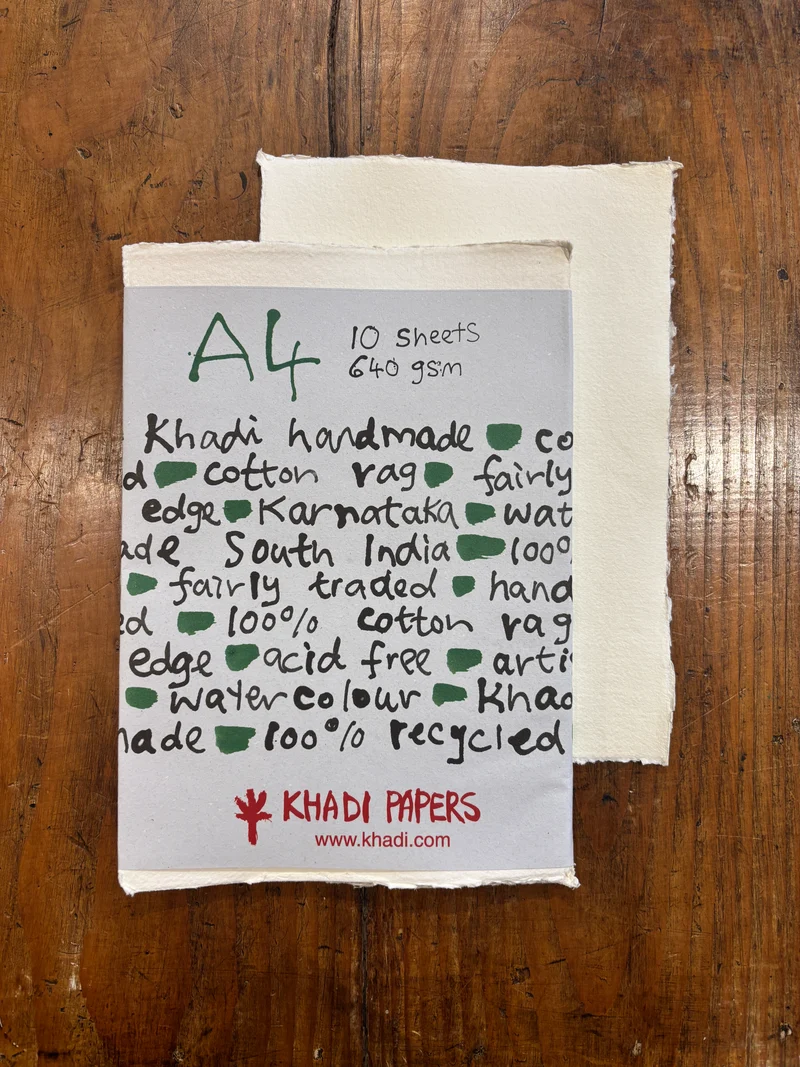 A4
10 sheets
640 gsm
Khadi handmade co
d cotton rag fairly
edge Karnataka wat
ade South India 100%
fairly traded hand
ed 100% cotton rag
edge acid free arti
watercolour Khad
made 100% recycled
KHADI PAPERS
www.khadi.com